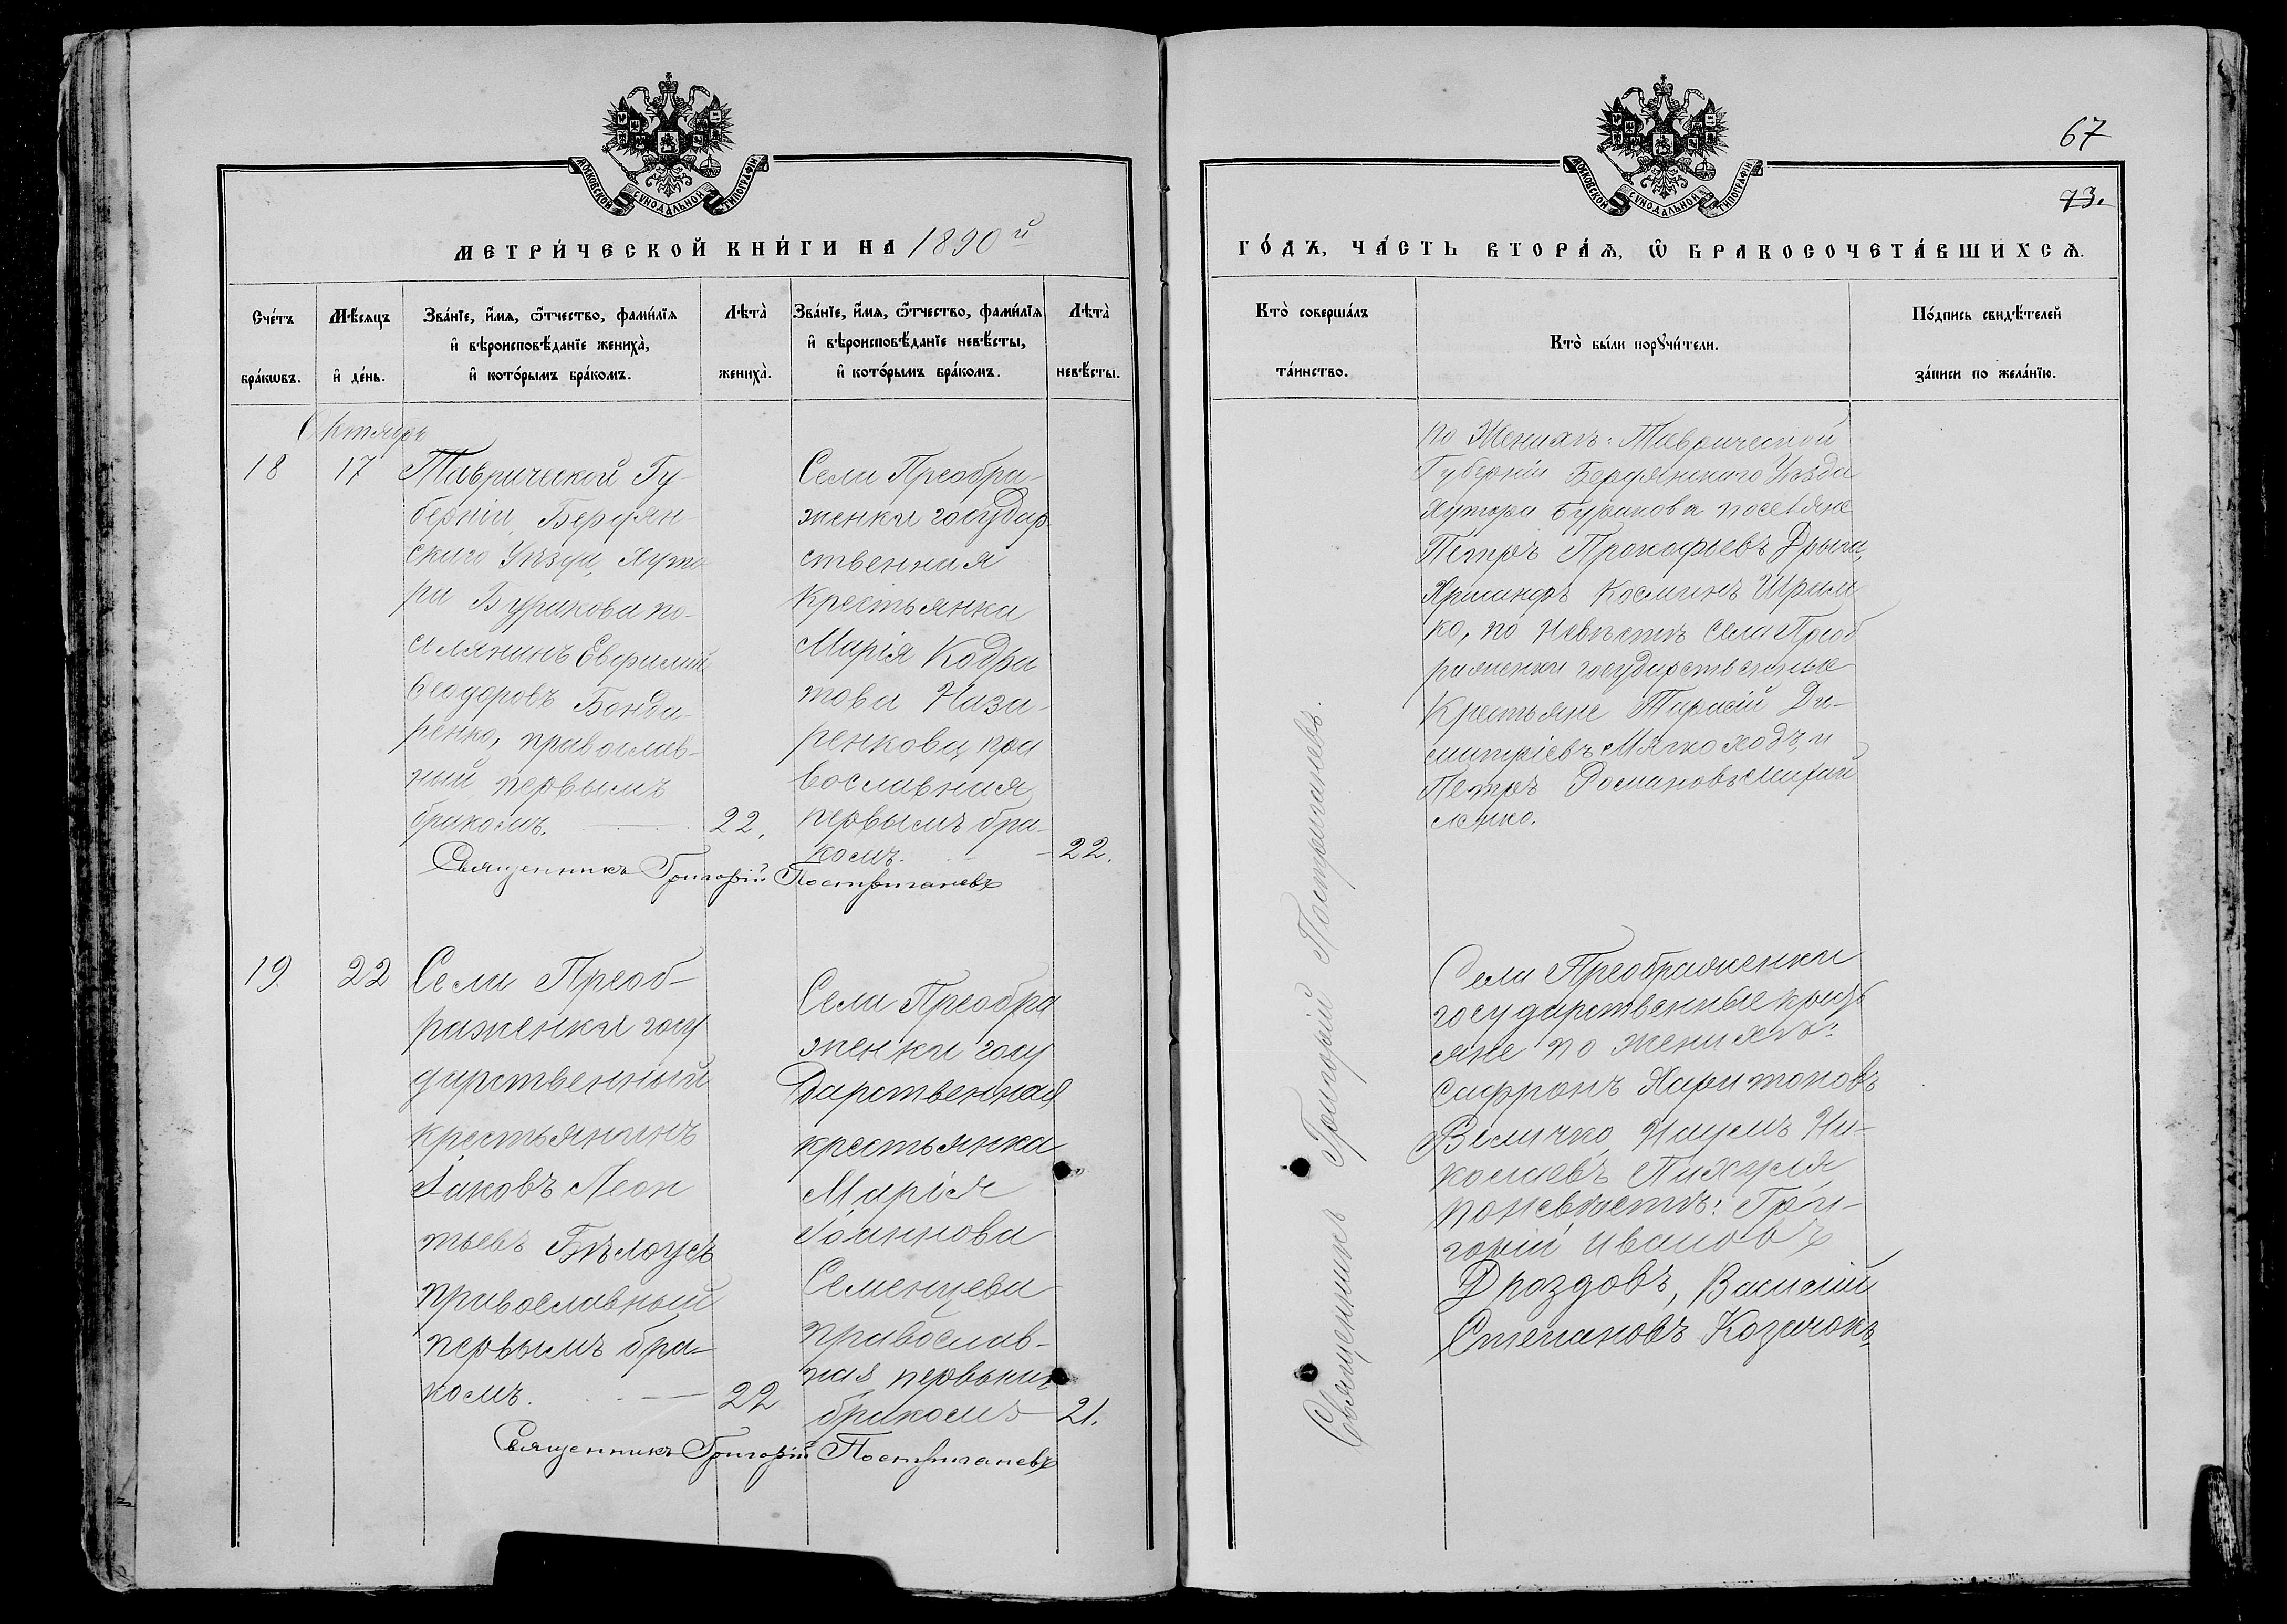 МОСКОВСКОЙ СѴНОДАЛЬНОЙ ТИПОГРАФІИ
МЕТРИ́ЧЕСКОЙ КНИ́ГИ НА 1890й
Сче́тъ бра́кѡвъ.
Мѣ́сяцъ и҆ де́нь.
Зва́нїе, и҆́мѧ, ѻ҆́тчество, фами́лїѧ
и҆ вѣроисповѣ́данїе жениха̀,
и҆ кото́рымъ бра́комъ.
Лѣта̀ жениха̀.
Зва́нїе, и҆́мѧ, ѻ҆́тчество, фами́лїѧ
и҆ вѣроисповѣ́данїе невѣ́сты,
и҆ кото́рымъ бра́комъ.
Лѣта̀ невѣ́сты.
Октябрь
18
17
Таврической Гу-
берніи, Бердян-
скаго Уѣзда, Хуто
ра Буракова по-
селянинъ Евфимій
Ѳеодоровъ Бонда-
ренко, православ-
ный первымъ
бракомъ.
22.
Села Преобра-
женки государ
ственная
Крестьянка
Марія Кодра
това Наза-
ренкова, пра
вославная
первымъ бра-
комъ.
22.
Священникъ Григорій Пострыганевъ
19.
22
Села Преоб-
раженки госу
дарственный
крестьянинъ
Іаковъ Леон
тьевъ Бѣлоусъ
православный
первымъ бра-
комъ.
22
Села Преобра
женки госу
Дарственная
крестьянка
Марія
Іоаннова
Семенцева
православ-
ная первымъ
бракомъ
21.
Священникъ Григорій Пострыганевъ
МОСКОВСКОЙ СѴНОДАЛЬНОЙ ТИПОГРАФІИ
67
73.
ГО́ДЪ, ЧА́СТЬ ВТОРА́Ѧ, Ѡ҆ БРАКОСОЧЕТА́ВШИХСѦ.
Кто̀ соверша́лъ
та́инство.
Кто̀ бы́ли порꙋчи́тели.
По́дпись свидѣ́телей
за́писи по жела́нїю.
Священникъ Григорій Пострыганевъ.
по Женихѣ: Таврической
Губерніи Бердянскаго Уѣзда
Хутора Буракова поселяне
Петръ Прокофьевъ Дрыга,
Космичъ
ко, по Невѣстѣ села Преоб
раженки государственные
Крестьяне Тарасій Ди-
митріевъ Мягкоходъ, и
Петръ Романовъ Михай
ленко.
Села Преображенки
государственные кресть
яне по женихѣ:
Сафронъ Харитоновъ
Величко, Наумъ Ни-
колаевъ Пихуля
по невѣстѣ: Гри-
горій Ивановъ
Дроздовъ, Василій
Степановъ Козачокъ